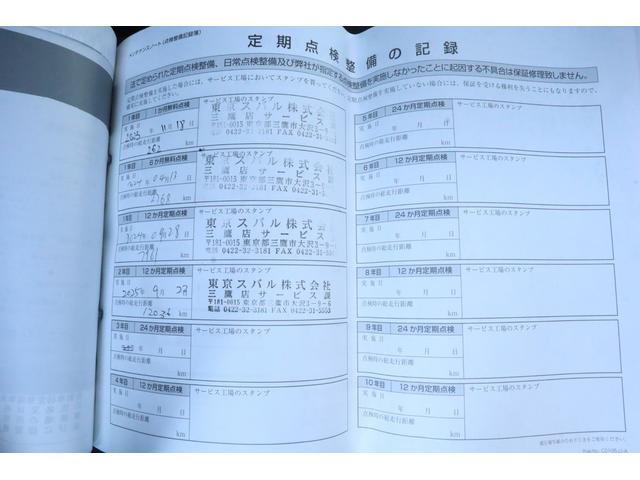 メンテナンスノート（点検整備記録簿）
定期点検整備の記録
法で定められた定期点検整備、日常点検整備及び弊社が指定する点検整備を実施しなかったことに起因する不具合は保証修理致しません。
1年目 1か月無料点検
サービス工場のスタンプ
実施日
2023年11月18日
点検時の総走行距離
262 km
東京スバル株式会
三鷹店サービス
〒181-0015 東京都三鷹市大沢3-9
電話 0422-32-3181 FAX 0422-31-
1年目 6か月無料点検
サービス工場のスタンプ
実施日
点検時の総走行距離
km
東京スバル株式会
三鷹店サービス
〒181-0015 東京都三鷹市大沢3-
0422-32-3181 FAX 0422-3
1年目 12か月定期点検
サービス工場のスタンプ
実施日
点検時の総走行距離
km
東京スバル株式会
三鷹店サービス
〒181-0015 東京都三鷹市大沢3-9
電話 0422-32-3181 FAX 0422-31-
2年目 12か月定期点検
サービス工場のスタンプ
実施日
2025年9月2日
点検時の総走行距離
12036 km
東京スバル株式会社
三鷹店サービス課
〒181-0015 東京都三鷹市大沢3-9-6
電話 0422-32-3181 FAX 0422-31-5553
3年目 24か月定期点検
サービス工場のスタンプ
実施日
年 月 日
点検時の総走行距離
km
4年目 12か月定期点検
サービス工場のスタンプ
実施日
年 月 日
点検時の総走行距離
km
5年目 24か月定期点検
サービス工場のスタンプ
実施日
年 月 日
点検時の総走行距離
km
6年目 12か月定期点検
サービス工場のスタンプ
実施日
年 月 日
点検時の総走行距離
km
7年目 24か月定期点検
サービス工場のスタンプ
実施日
年 月 日
点検時の総走行距離
km
8年目 12か月定期点検
サービス工場のスタンプ
実施日
年 月 日
点検時の総走行距離
km
9年目 24か月定期点検
サービス工場のスタンプ
実施日
年 月 日
点検時の総走行距離
km
10年目 12か月定期点検
サービス工場のスタンプ
実施日
年 月 日
点検時の総走行距離
km